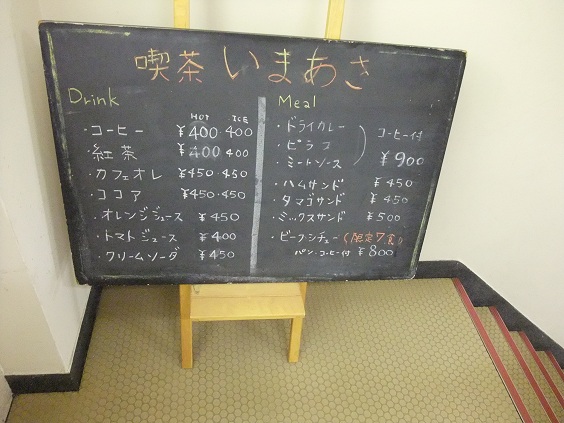 喫茶 いまあさ
Drink
HOT ICE
・コーヒー ¥400・400
・紅茶 ¥400 400
・カフェオレ ¥450・450
・ココア ¥450・450
・オレンジジュース ¥450
・トマトジュース ¥400
・クリームソーダ ¥450
Meal
・ドライカレー
・ピラフ
・ミートソース
コーヒー付
¥900
・ハムサンド ¥450
・タマゴサンド ¥450
・ミックスサンド ¥500
・ビーフシチュー (限定7食)
パン・コーヒー付 ¥800